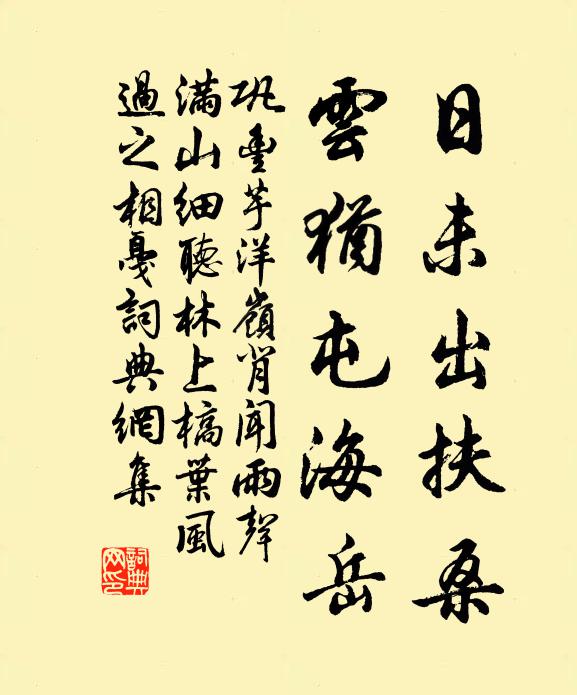 日未出扶桑
雲猶屯海岳
巩豐芋洋嶺背聞雨聲
滿山細聽林上槁葉風
過之相戛詞典網集
詞典网印